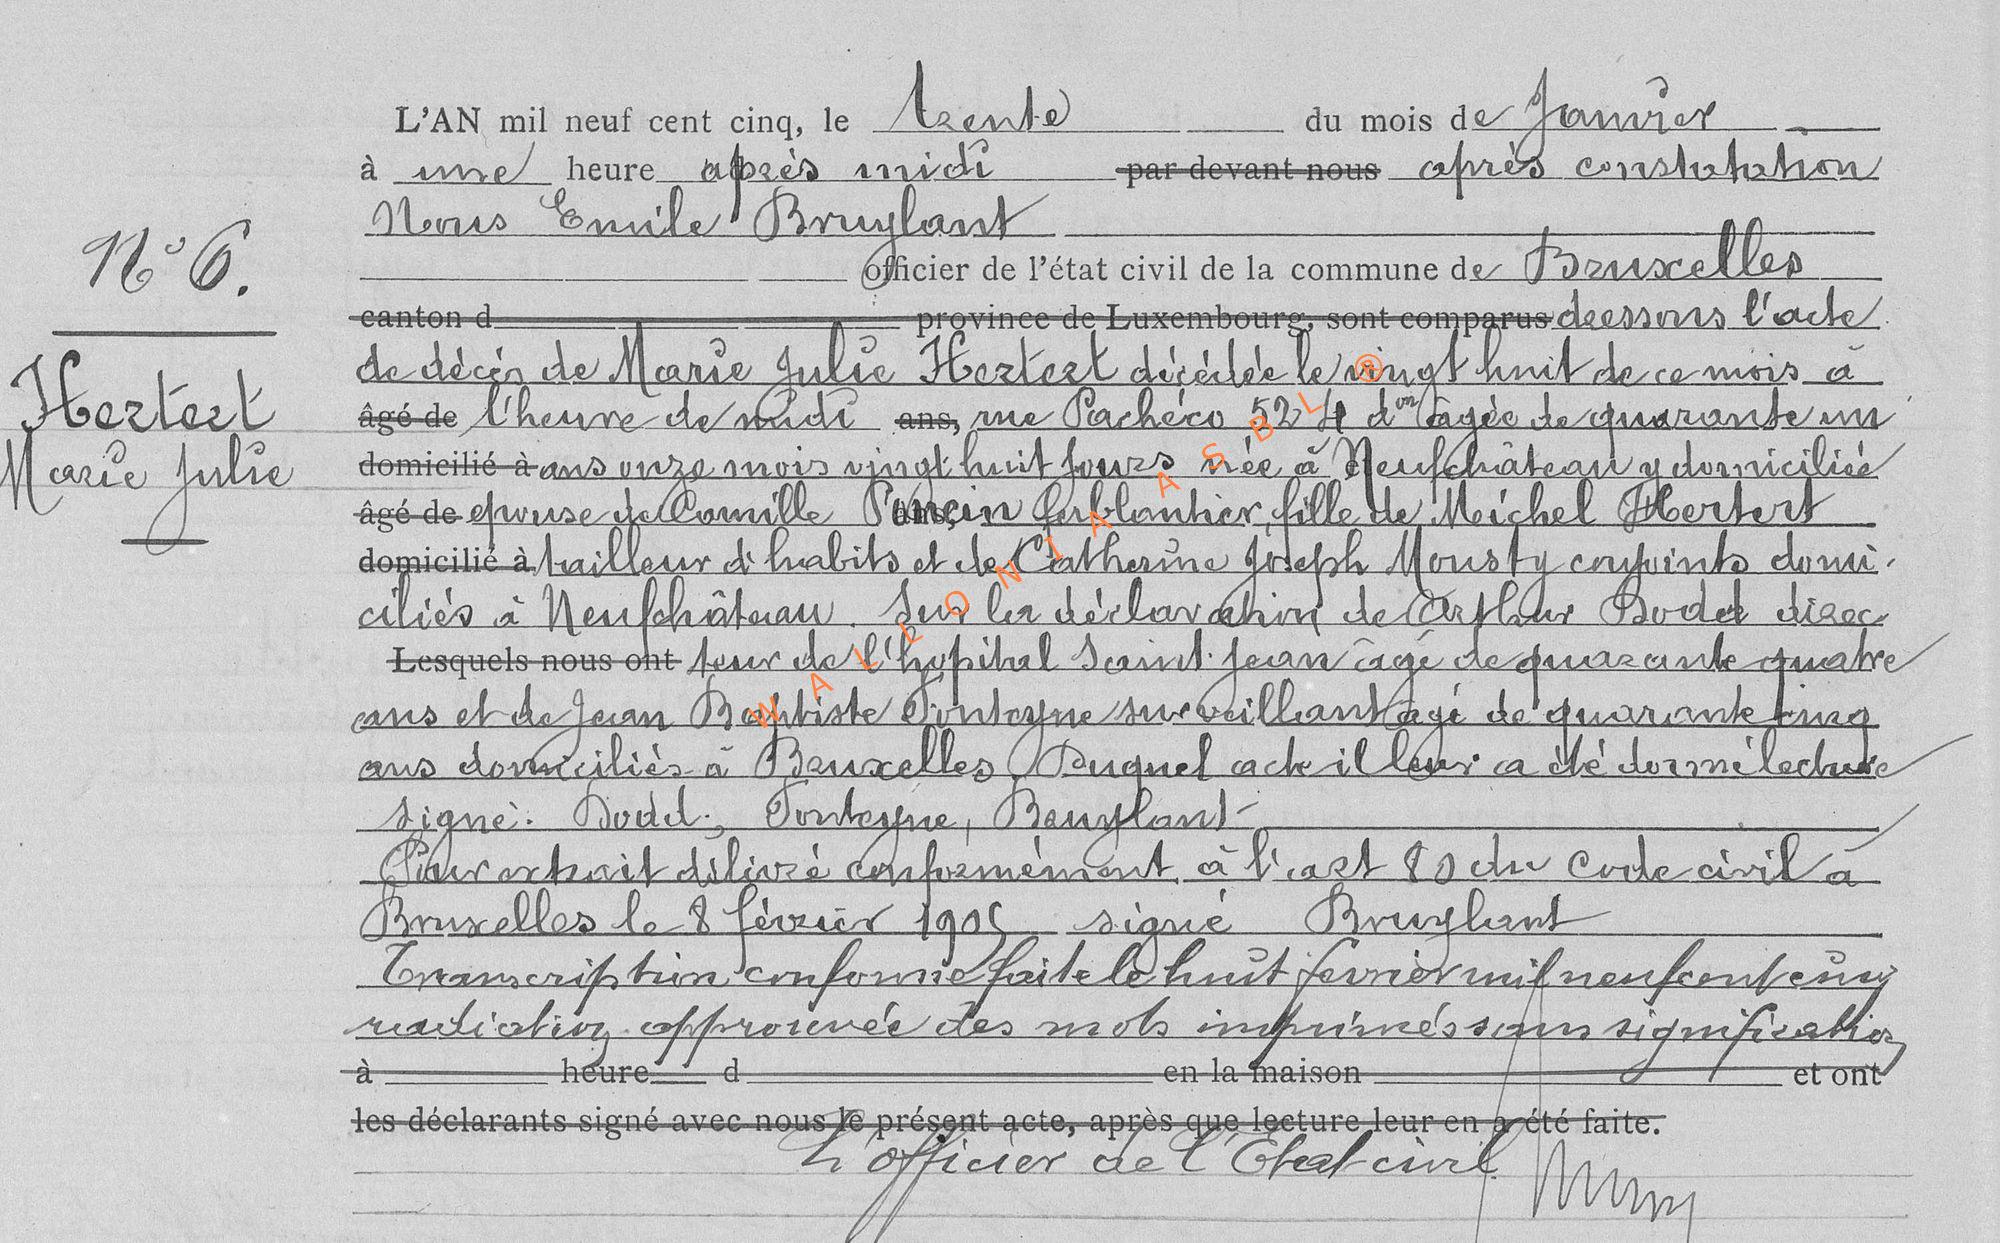 L'AN mil neuf cent cinq, le trente du mois de Janvier
à une heure après midi par devant nous après constatation
Nous Emile Bruylant
officier de l'état civil de la commune de Bruxelles
N° 6.
canton d province de Luxembourg, sont comparus dressons l'acte
de décès de Marie Julie Hertert décédée le vingt huit de ce mois à
Hertert
âgé de l'heure de midi ans, rue Pachéco 52 4 don âgée de quarante un
Marie Julie
domicilié à ans onze mois vingt huit jours née à Neufchâteau y domiciliée
âgé de épouse de Camille ans, ferblantier, fille de Michel Hertert
domicilié à tailleur d'habits et de Catherine Joseph Mousty conjoints domi-
ciliés à Neufchâteau. Sur la déclaration de Arthur Dodd direc
Lesquels nous ont teur de l'hopital Saint-Jean âgé de quarante quatre
ans et de Jean Baptiste Fonteyne surveillant âgé de quarante cinq
ans domiciliés à Bruxelles. Duquel acte il leur a été donné lecture
signé: Dodd., Fonteyne, Bruylant
Pour extrait délivré conformément à l'art 80 du Code civil à
Bruxelles le 8 février 1905 signé Bruylant
Transcription conforme faite le huit fevrier mil neuf cent cinq
radiation approuvée des mots imprimés sans signification
à heure d en la maison et ont
les déclarants signé avec nous le présent acte, après que lecture leur en a été faite.
L'officier de l'Etat civil
WALLONIA ASBL ®